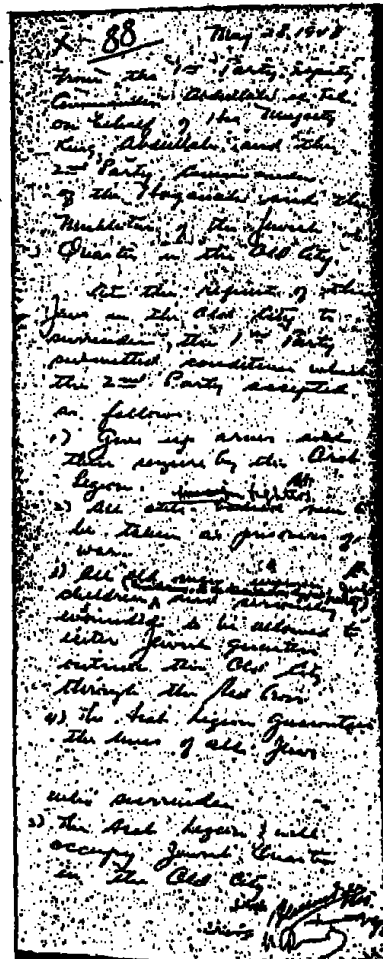 X-88. May 28, 1948
From the 1st Party deputy
Commander Abdullah el Tel
on behalf of His Majesty
King Abdullah and the
2nd Party, Commander
of the Haganah and the
Mukhtar of the Jewish
Quarter in the Old City.
At the request of the
Jews in the Old City to
surrender, the 1st Party
submitted conditions which
the 2nd Party accepted
as follows.
1) Give up arms and
their seizure by the Arab
Legion.
2) All able bodied men to
be taken as prisoners of
war.
3) All old men, women
children, and seriously
wounded to be allowed to
enter Jewish Quarters
outside the Old City
through the Red Cross
4) The Arab Legion guarantees
the lives of all Jews
who surrender
5) The Arab Legion will
occupy Jewish Quarter
in the Old City